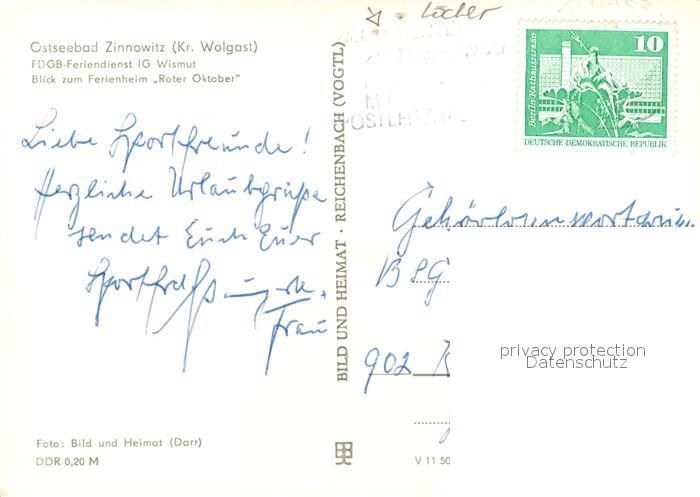 Löcher
Ostseebad Zinnowitz (Kr. Wolgast)
FDGB-Feriendienst IG Wismut
Blick zum Ferienheim „Roter Oktober"
Liebe Sportfreunde!
Herzliche Urlaubsgrüße
sendet Euch Euer
Frau
Foto: Bild und Heimat (Darr)
DDR 0,20 M
BILD UND HEIMAT · REICHENBACH (VOGTL)
V 11 50
10
Berlin-Rathausstraße
DEUTSCHE DEMOKRATISCHE REPUBLIK
BSG
902
privacy protection
Datenschutz